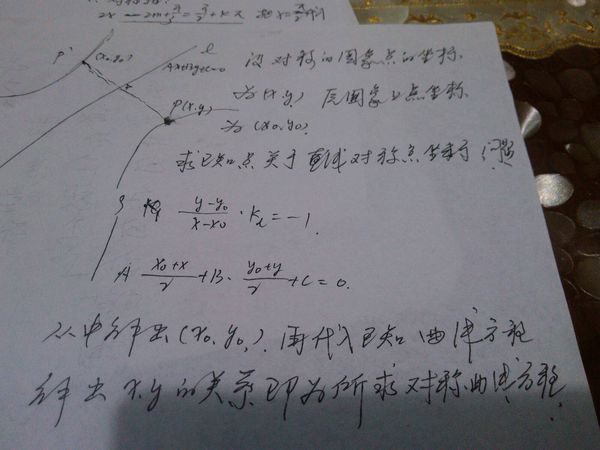 2x - 2m + π/3 = π/2 + kπ 把x=
l
P' (x₀,y₀)
Ax+By+c=0
P(x,y)
设对称的图象点的坐标
为(x,y) 原图象上点坐标
为(x₀,y₀)
求已知点关于直线对称点坐标问题
(y-y₀)/(x-x₀)·K_l=-1.
A (x₀+x)/2+B·(y₀+y)/2+C=0.
从中解出(x₀,y₀),再代入已知曲线方程
解出x,y的关系即为所求对称曲线方程.